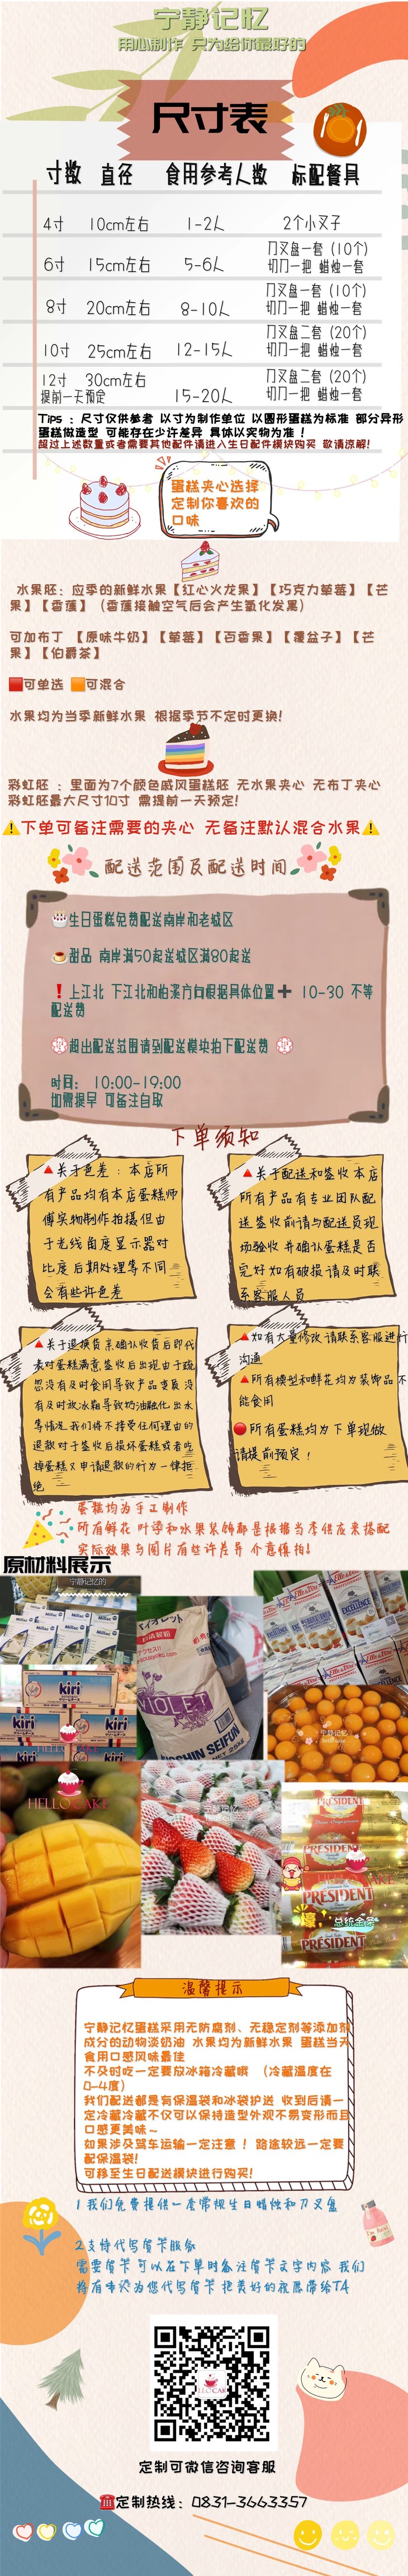 宁静记忆
用心制作 只为给你最好的
尺寸表
寸数 直径 食用参考人数 标配餐具
4寸 10cm左右 1-2人 2个小叉子
6寸 15cm左右 5-6人 刀叉盘一套 (10个)
切刀一把 蜡烛一套
8寸 20cm左右 8-10人 刀叉盘一套 (10个)
切刀一把 蜡烛一套
10寸 25cm左右 12-15人 刀叉盘二套 (20个)
切刀一把 蜡烛一套
12寸 30cm左右 15-20人 刀叉盘二套 (20个)
提前一天预定 切刀一把 蜡烛一套
Tips : 尺寸仅供参考 以寸为制作单位 以圆形蛋糕为标准 部分异形
蛋糕做造型 可能存在少许差异 具体以实物为准 !
超过上述数量或者需要其他配件请进入生日配件模块购买 敬请谅解!
蛋糕夹心选择
定制你喜欢的
口味
水果胚: 应季的新鲜水果【红心火龙果】【巧克力草莓】【芒
果】【香蕉】 (香蕉接触空气后会产生氧化发黑)
可加布丁 【原味牛奶】【草莓】【百香果】【覆盆子】【芒
果】【伯爵茶】
可单选 可混合
水果均为当季新鲜水果 根据季节不定时更换!
彩虹胚 : 里面为7个颜色戚风蛋糕胚 无水果夹心 无布丁夹心
彩虹胚最大尺寸10寸 需提前一天预定!
下单可备注需要的夹心 无备注默认混合水果
配送范围及配送时间
生日蛋糕免费配送南岸和老城区
甜品 南岸满50起送城区满80起送
上江北 下江北和柏溪方向根据具体位置➕ 10-30 不等
配送费
超出配送范围请到配送模块拍下配送费
时间: 10:00-19:00
如需提早 可备注自取
下单须知
关于色差 : 本店所
有产品均有本店蛋糕师
傅实物制作拍摄但由
于光线角度显示器对
比度后期处理等不同
会有些许色差
关于配送和签收 本店
所有产品有专业团队配
送签收前请与配送员现
场验收 并确认蛋糕是否
完好 如有破损请及时联
系客服人员
关于退换货 亲确认收货后即代
表对蛋糕满意 签收后出现由于疏
忽没有及时食用导致产品变质 没
有及时放冰箱导致奶油融化 出水
等情况 我们将不接受任何理由的
退款 对于签收后损坏蛋糕或者吃
掉蛋糕又申请退款的行为一律拒
绝
如有大量修改请联系客服进行
沟通
所有模型和鲜花均为装饰品不
能食用
所有蛋糕均为下单现做
请提前预定 !
蛋糕均为手工制作
所有鲜花 叶子和水果装饰都是根据当季供应来搭配
实际效果与图片有些许差异 介意慎拍!
原材料展示
宁静记忆的
Milkii
kiri
HELLO CAKE
VIOLET
NISSHIN SEIFUN
25KG
Elle & Vire
EXCELLENCE
宁静记忆
HELLO CAKE
宁静记忆
PRESIDENT
PRESIDENT
PRESIDENT
PRESIDENT
壕
总统金条
温馨提示
宁静记忆蛋糕采用无防腐剂、无稳定剂等添加剂
成分的动物淡奶油 水果均为新鲜水果 蛋糕当天
食用口感风味最佳
不及时吃一定要放冰箱冷藏哦 (冷藏温度在
0-4度)
我们配送都是有保温袋和冰袋护送 收到后请一
定冷藏冷藏不仅可以保持造型外观不易变形而且
口感更美味~
如果涉及驾车运输一定注意 ! 路途较远一定要
配保温袋!
可移至生日配送模块进行购买!
1 我们免费提供一套常规生日蜡烛和刀叉盘
2支持代写贺卡服务
需要贺卡 可以在下单时备注贺卡文字内容 我们
将有专人为您代写贺卡 把美好的祝愿带给TA
定制可微信咨询客服
☎定制热线: 0831-3663357